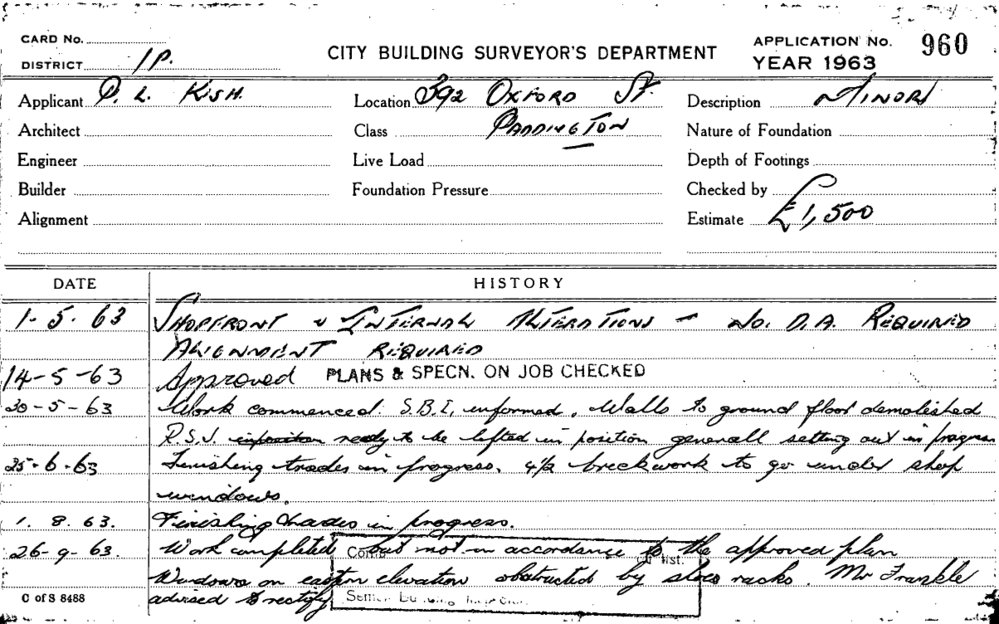 CARD No.
CITY BUILDING SURVEYOR'S DEPARTMENT
APPLICATION No. 960
DISTRICT 1P.
YEAR 1963
Applicant P. L. KISH. Location 392 OXFORD ST Description MINOR
Architect Class PADDINGTON Nature of Foundation
Engineer Live Load Depth of Footings
Builder Foundation Pressure Checked by
Alignment Estimate £1,500
DATE HISTORY
1-5-63 SHOPFRONT & INTERNAL ALTERATIONS - NO. D.A. REQUIRED
ALIGNMENT REQUIRED
14-5-63 Approved PLANS & SPECN. ON JOB CHECKED
30-5-63 Work commenced. S.B.I. informed. Walls to ground floor demolished
R.S.J. ready to be lifted in position generall setting out in progress
25-6-63 Finishing trades in progress. 4½ brickwork to go under shop
windows.
1. 8. 63. Finishing trades in progress.
26-9-63. Work completed but not in accordance to the approved plan
Windows on eastern elevation obstructed by shoe racks. Mr Frankle
C of S 8488 advised to rectify